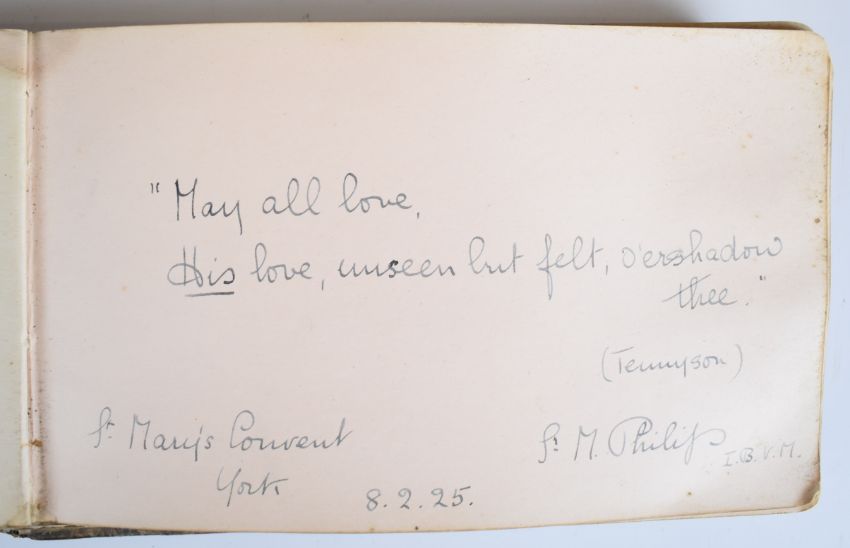 "May all love,
His love, unseen but felt, o'ershadow
thee."
(Tennyson)
St. Mary's Convent
York
8.2.25.
Sr. M. Philip
I.B.V.M.